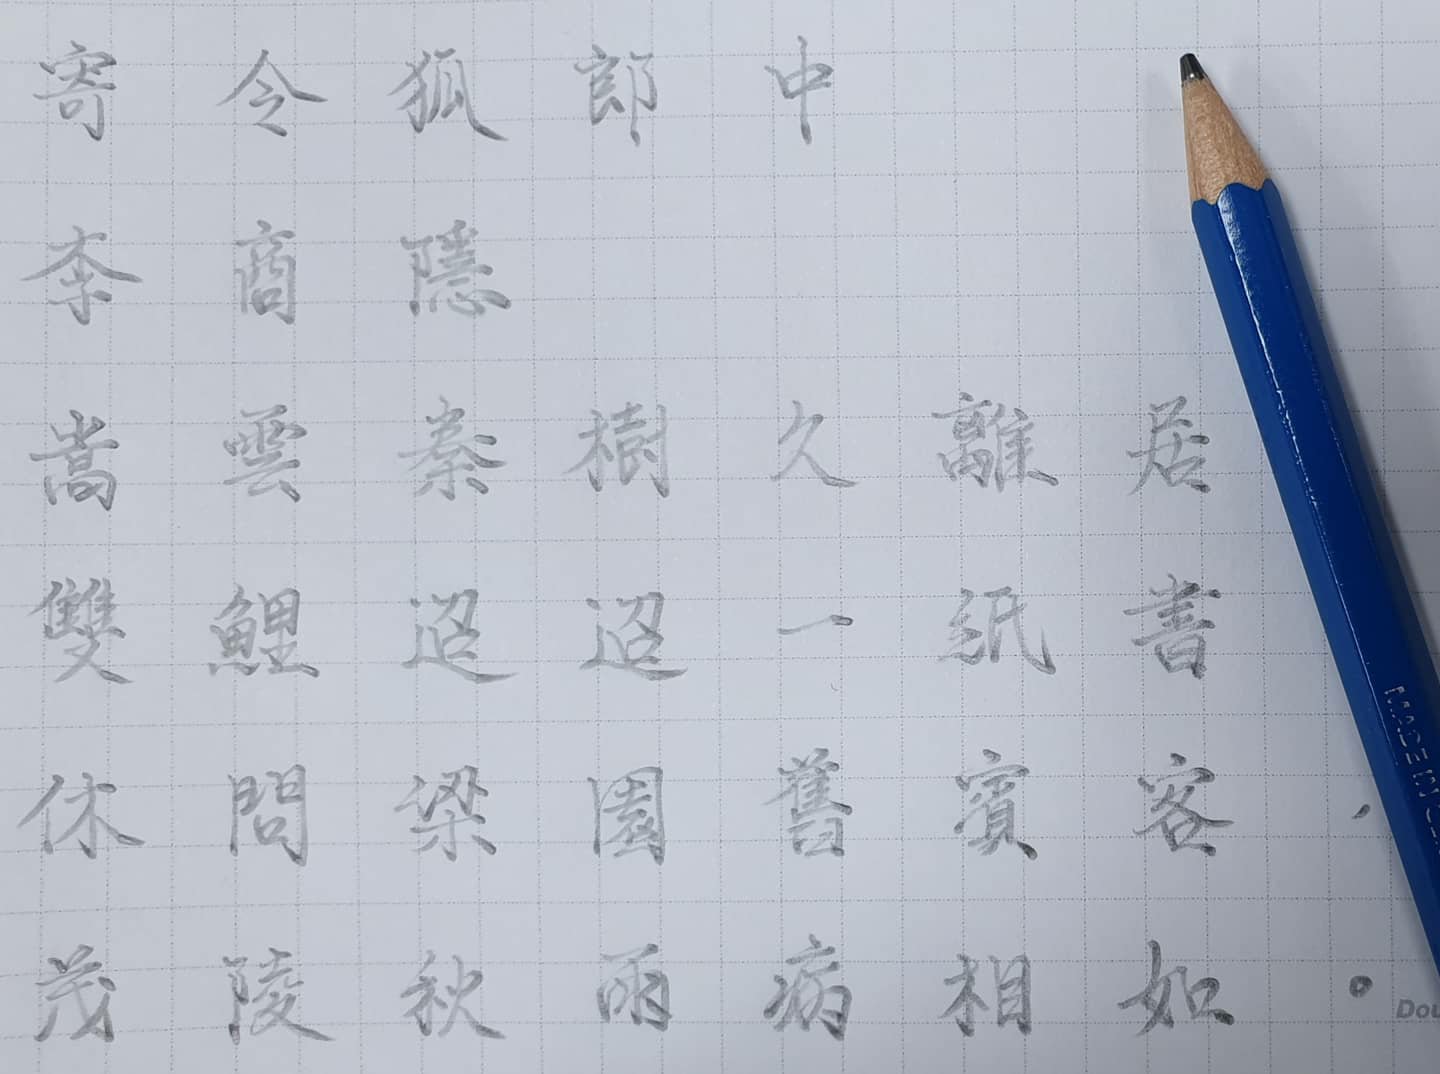 寄令狐郎中
李商隱
嵩雲秦樹久離居
雙鯉迢迢一紙書
休問梁園舊賓客，
茂陵秋雨病相如。
MADE IN
Dou